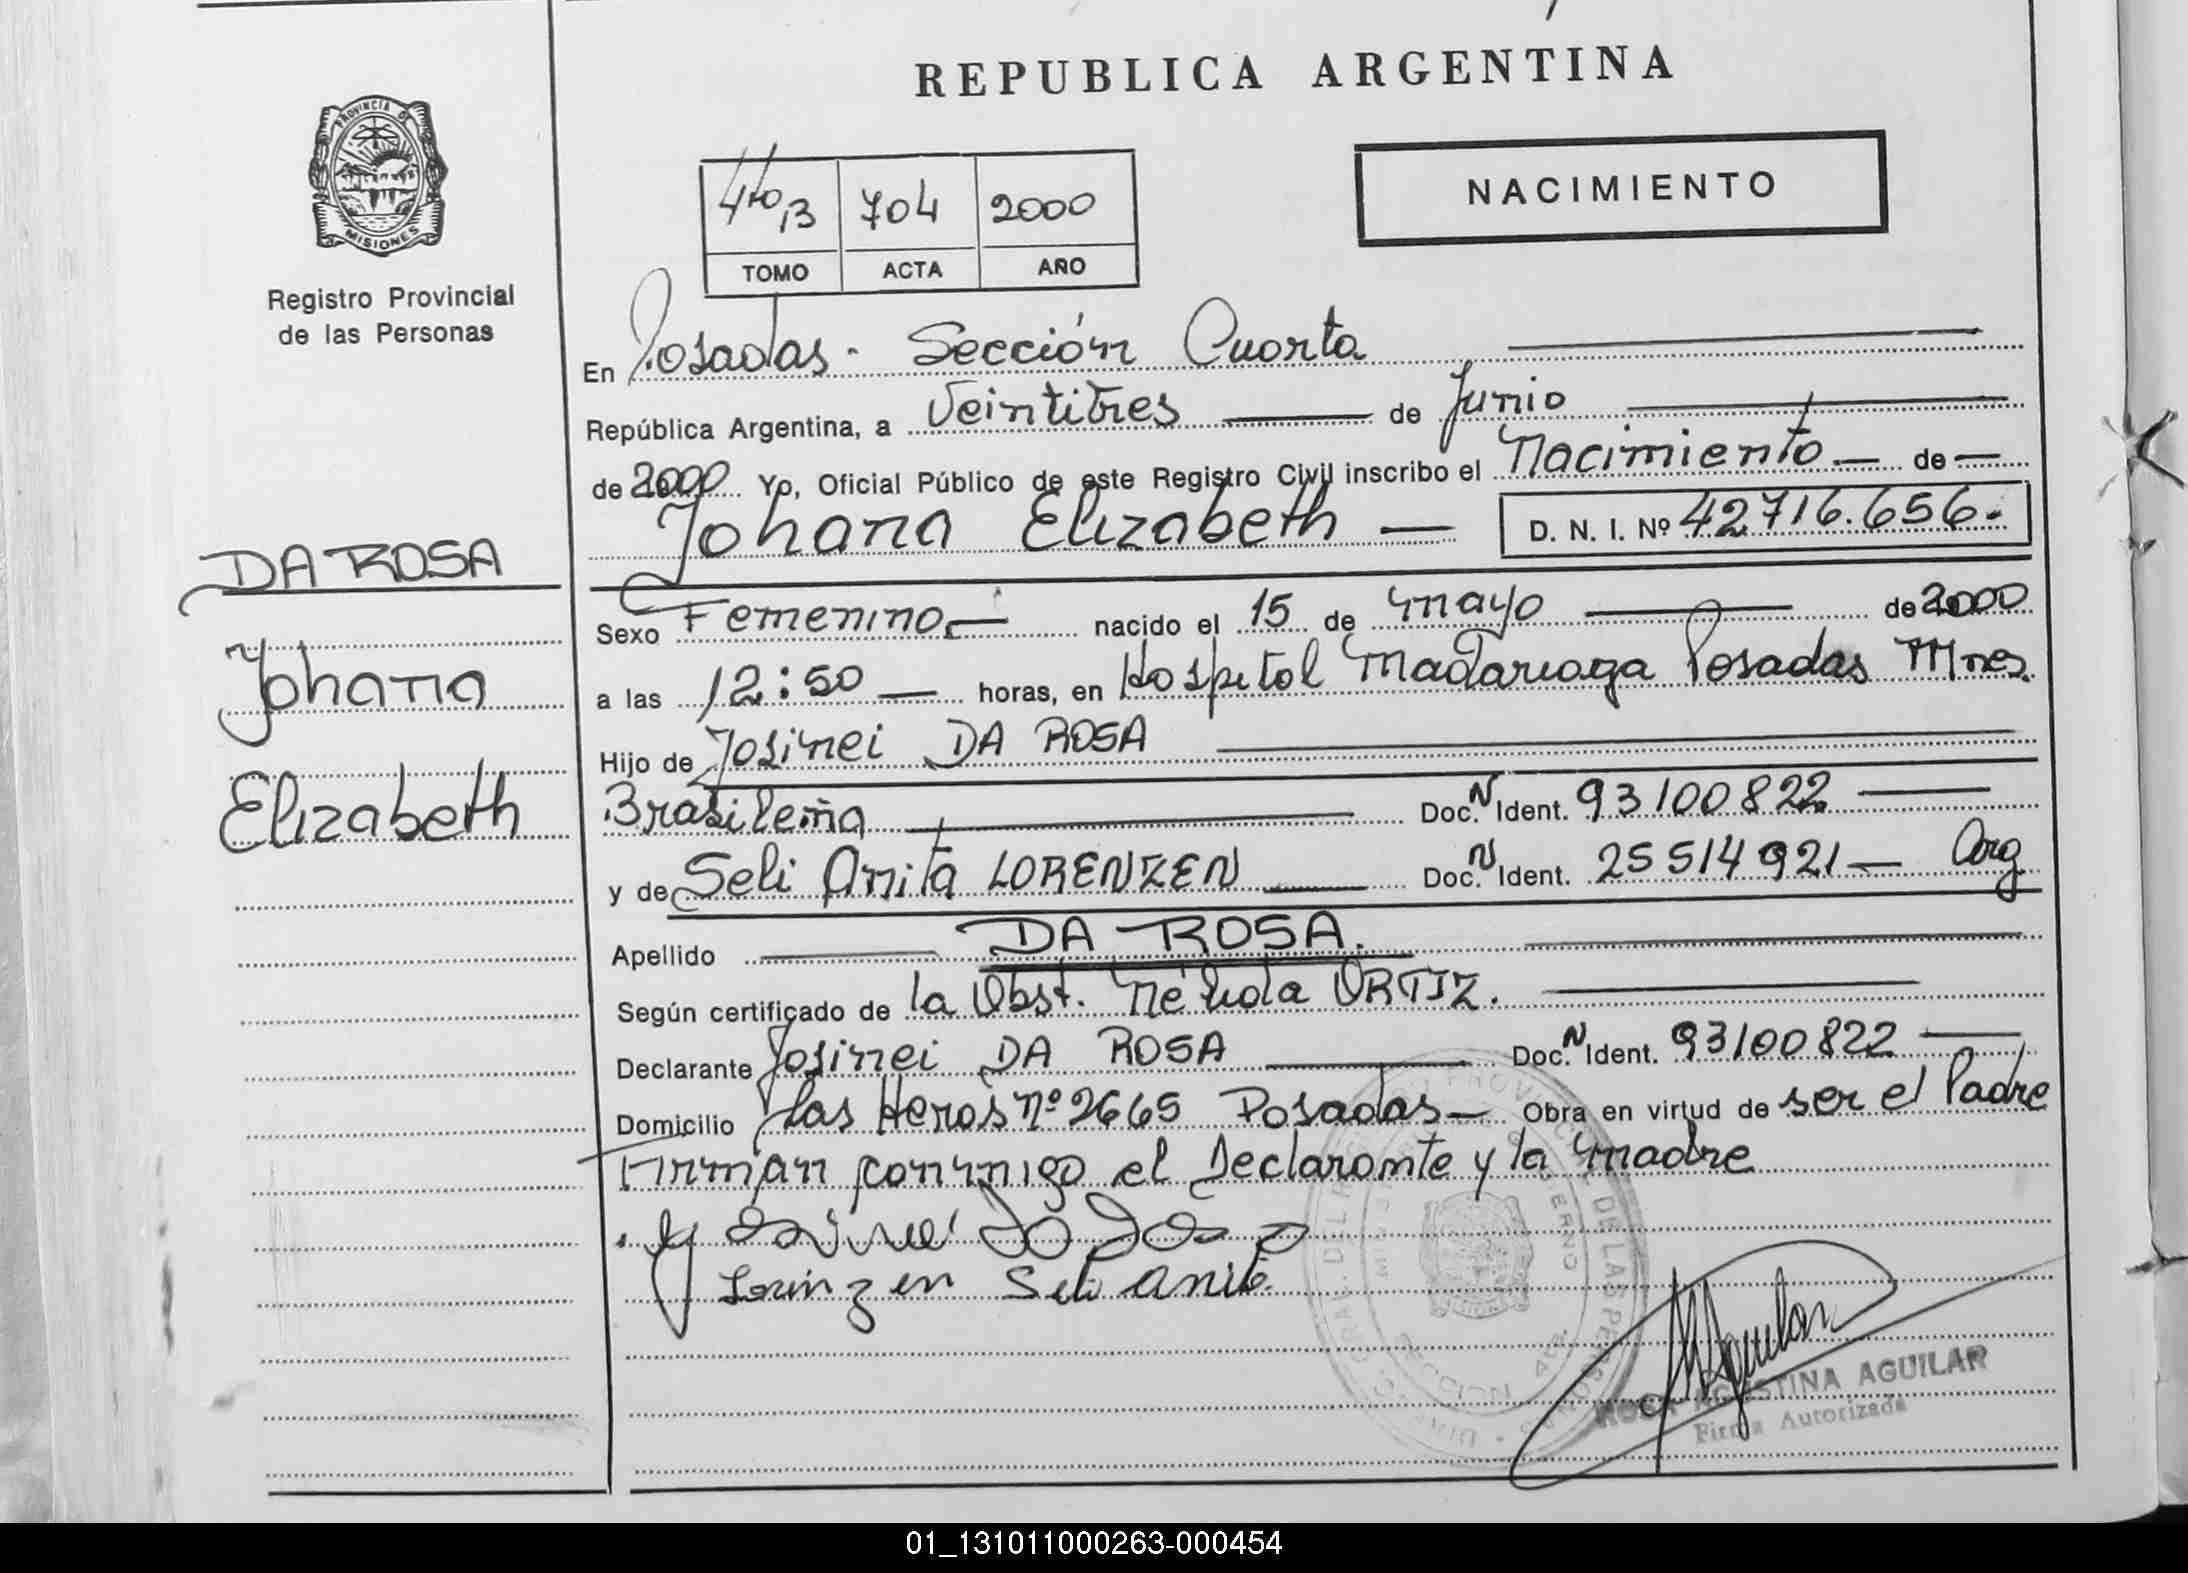 REPUBLICA ARGENTINA
PROVINCIA DE
MISIONES
Registro Provincial
de las Personas
NACIMIENTO
4to 13 704 2000
TOMO ACTA AÑO
En Posadas - Sección Cuarta
República Argentina, a Veintitres de Junio
de 2000 Yo, Oficial Público de este Registro Civil inscribo el Nacimiento de
Johana Elizabeth D. N. I. Nº 42716.656.-
DA ROSA
Johana
Elizabeth
Sexo Femenino nacido el 15 de mayo de 2000
a las 12:50 horas, en Hospital Madariaga Posadas Mnes.
Hijo de Josinei DA ROSA
Brasileña Doc. N Ident. 93100822
y de Seli Anita LORENZEN Doc. N Ident. 25514921 Arg
Apellido DA ROSA.
Según certificado de la Obst. ORTIZ.
Declarante Josinei DA ROSA Doc. N Ident. 93100822
Domicilio Las Heros nº 2665 Posadas Obra en virtud de ser el Padre
Firman conmigo el Declarante y la madre
Lorenzen Seli Anita
ROSA AGUSTINA AGUILAR
Firma Autorizada
01_131011000263-000454